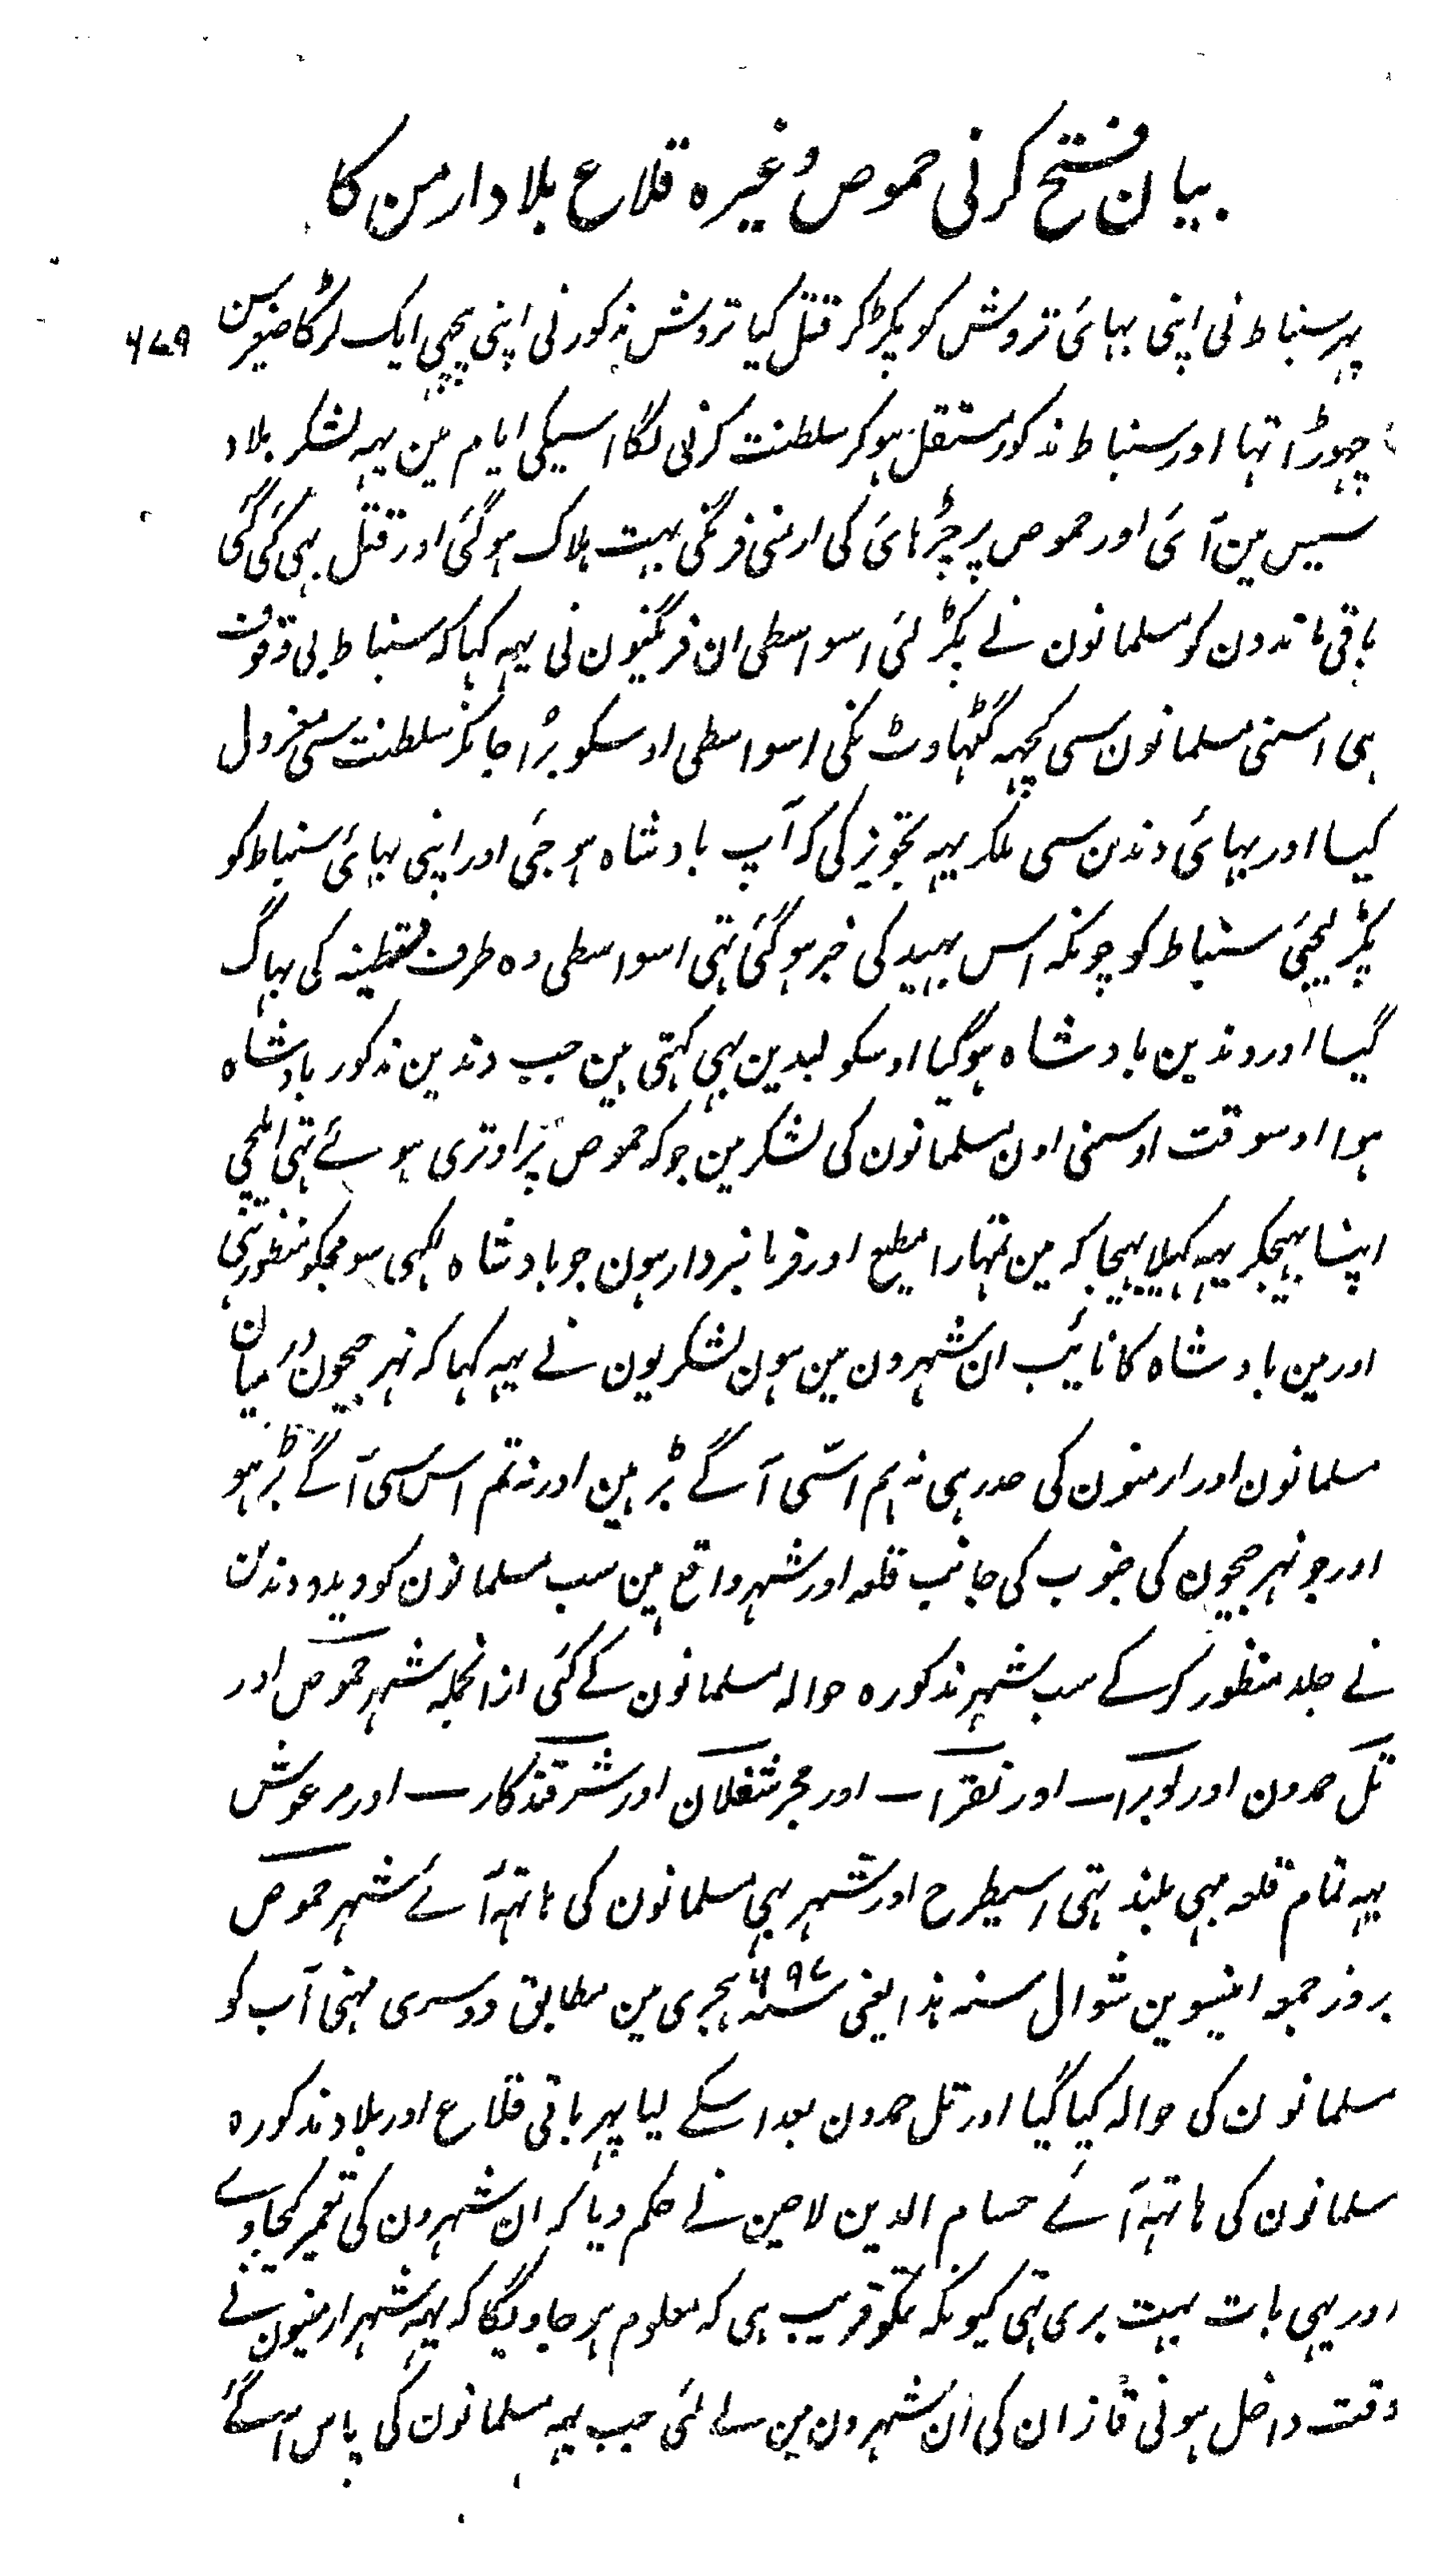 بیان فتح کرنی حموص وغیرہ قلاع بلاد ارمن کا
پہر سنباط نی اپنی بہائی تروش کو پکڑ کر قتل کیا تروش مذکور نی اپنی پیچہی ایک لڑکا صغیر سن ۶۷۹
چہوڑا تہا اور سنباط مذکور مستقل ہو کر سلطنت کرنی لگا اسیکی ایام مین یہہ لشکر بلاد
سیس مین آئی اور حموص پر چڑہائی کی ارمنی فرنگی بہت ہلاک ہو گئی اور قتل بہی کئی گئی
باقی ماندون کو مسلمانون نے پکڑ لئی اسواسطی ان فرنگیون نی یہہ کہا کہ سنباط بی وقوف
ہی اسنی مسلمانون سی کچہہ گٹہاوٹ نکی اسواسطی اوسکو بُرا جانکر سلطنت سی معزول
کیا اور بہائی دندین سی ملکر یہہ تجویز کی کہ آپ بادشاہ ہو جئی اور اپنی بہائی سنباط کو
پکڑ لیجئی سنباط کو چونکہ اس بہید کی خبر ہو گئی تہی اسواسطی وہ طرف قسطنطینہ کی بہاگ
گیا اور دندین بادشاہ ہو گیا اوسکو لبدین بہی کہتی ہین جب دندین مذکور بادشاہ
ہوا اوسوقت اوسنی اون مسلمانون کی لشکر مین جو کہ حموص پر اوتری ہوئے تہی ایلچی
اپنا بہیجکر یہہ کہلا بہیجا کہ مین تمہارا مطیع اور فرمانبردار ہون جو بادشاہ کہی سو مجکو منظور ہی
اور مین بادشاہ کا نائب ان شہرون مین ہون لشکریون نے یہہ کہا کہ نہر جیحون درمیان
مسلمانون اور ارمنون کی حد رہی نہ ہم اسّی آگے بڑہین اور نہ تم اس سی آگے بڑہو
اور جو نہر جیحون کی جنوب کی جانب قلعہ اور شہر واقع ہین سب مسلمانون کو دیدو دندین
نے جلد منظور کر کے سب شہر مذکورہ حوالہ مسلمانون کے کئی ازانجملہ شہر حموص اور
تل حمدون اور کوبرا اور نقرا اور حجر شغلان اور شرقندکار اور مرعوش
یہہ تمام قلعہ بہی بلند تہی اسیطرح اور شہر بہی مسلمانون کی ہاتہہ آئے شہر حموص
بروز جمعہ انیسوین شوال سنہ ہذا یعنی سنہ ۶۹۷ ہجری مین مطابق دوسری مہنی آب کو
مسلمانون کی حوالہ کیا گیا اور تل حمدون بعد اسکے لیا پہر باقی قلاع اور بلاد مذکورہ
مسلمانون کی ہاتہہ آئے حسام الدین لاجین نے حکم دیا کہ ان شہرون کی تعمیر کیجاوے
اور یہی بات بہت بری تہی کیونکہ تمکو قریب ہی کہ معلوم ہو جاویگا کہ یہہ شہر ارمنیون نے
وقت داخل ہونی قازان کی ان شہرون مین لے لئی جب یہہ مسلمانون کی پاس آ گئے